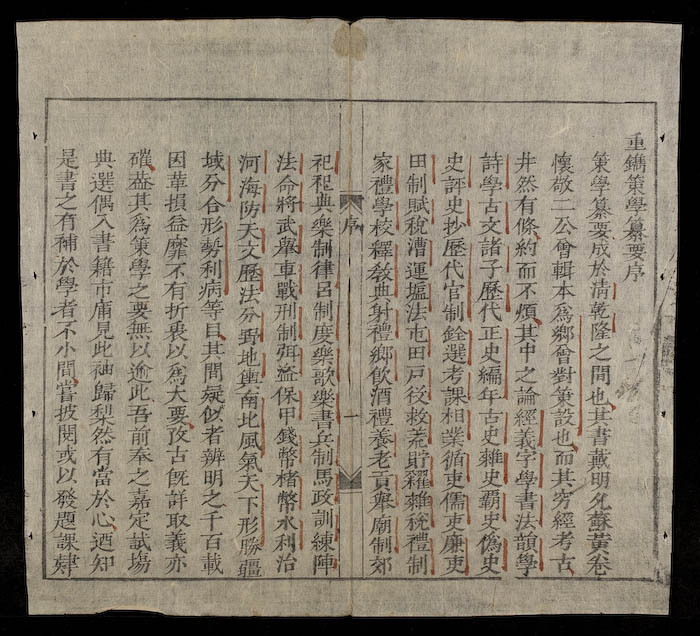 重鐫策學纂要序
策學纂要成於清乾隆之間也其書戴明允蘇黃卷
懷敬二公會輯本為鄉會對策設也而其穷經考古
井然有條約而不煩其中之論經義字學書法韻學
詩學古文諸子歷代正史編年古史雜史霸史偽史
史評史抄歷代官制銓選考課相業循吏儒吏廉吏
田制賦稅漕運塩法屯田戶役救荒貯糴雜稅禮制
家禮學校釋敎典射禮鄉飲酒禮養老貢舉廟制郊
序
一
祀祀典樂制律呂制度樂歌樂書兵制馬政訓練陣
法命將武舉車戰刑制弭盜保甲錢幣楮幣水利治
河海防天文歷法分野地輿南北風氣天下形勝疆
域分合形勢利病等目其間疑似者辨明之千百載
因革損益靡不有折衷以為大要攷古旣詳取義亦
確葢其為策學之要無以逾此吾前奉之嘉定試場
典選偶入書籍市庸見此袖歸梨然有當於心迺知
是書之有補於學者不小間嘗披閱或以發題課肄